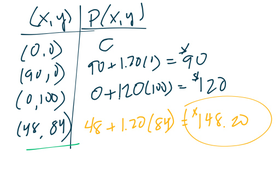 (x,y) P(x,y)
(0,0) 0
(90,0) 90+1.20(1) = $90
(0,100) 0+120(100) = $120
(48,84) 48+1.20(84) = $148.20